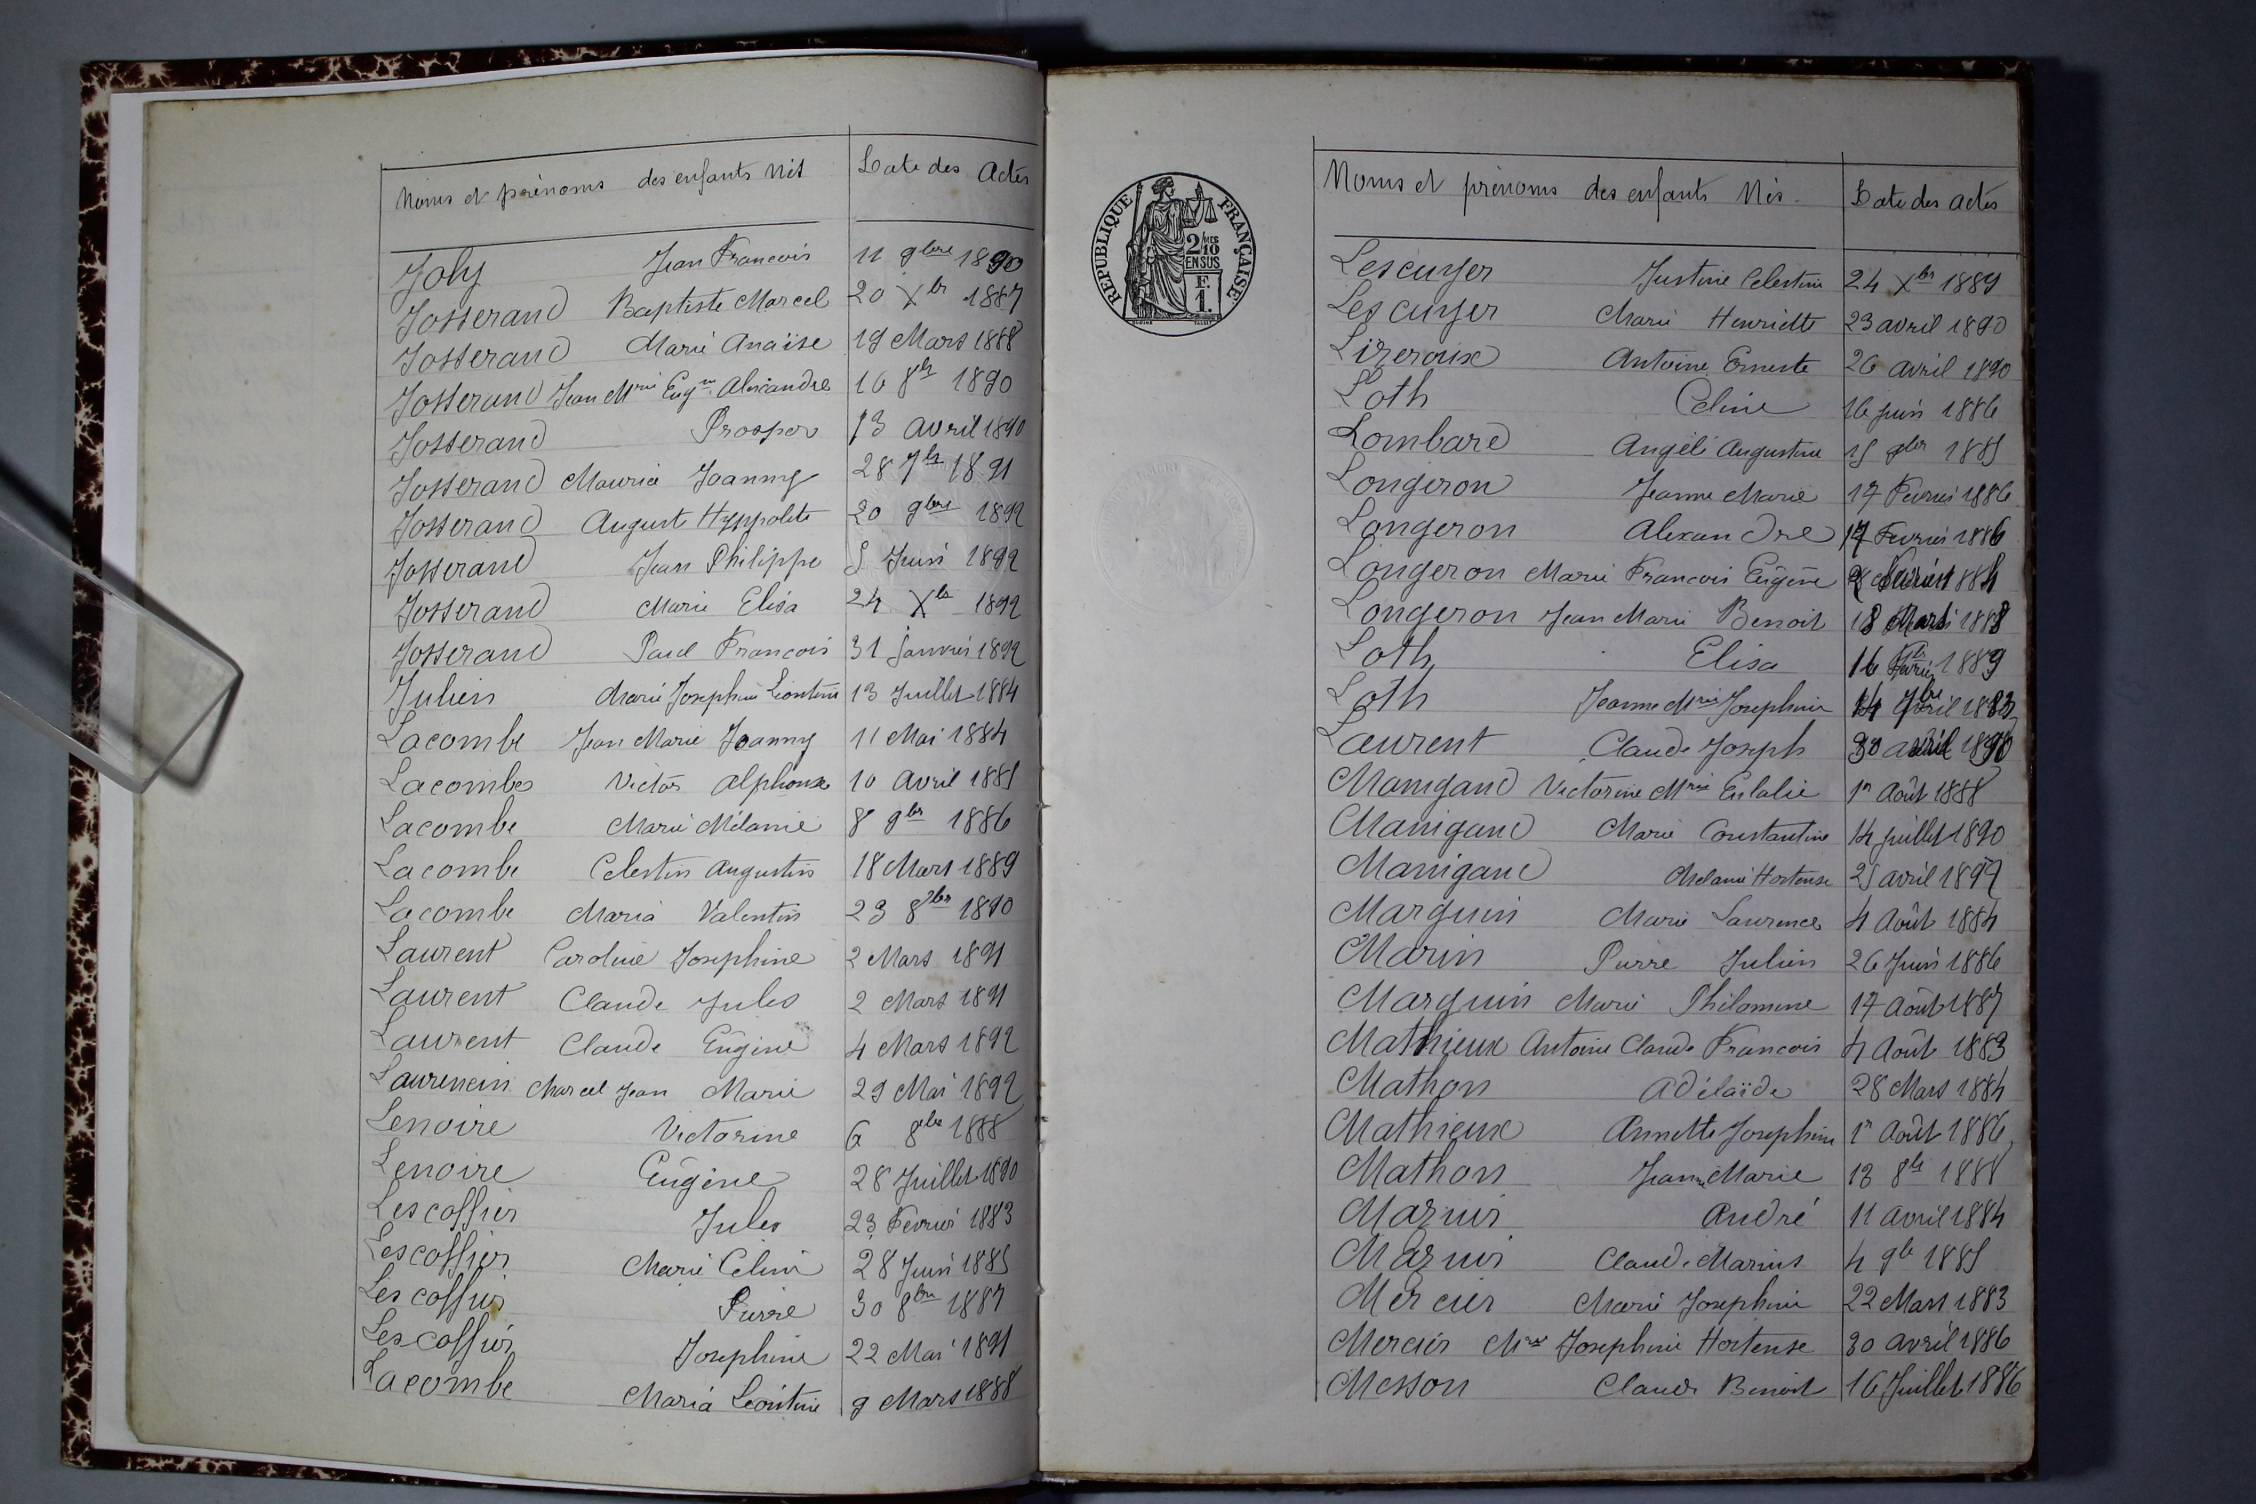 Noms et prénoms des enfants Nés Date des Actes
Joly Jean Francois 11 9bre 1890
Josserand Baptiste Marcel 20 Xbr 1887
Josserand Marie Anaïse 19 Mars 1888
Josserand Jean Mrie Eugne Alexandre 16 8br 1890
Josserand Prosper 13 avril 1890
Josserand Maurice Joanny 28 7br 1891
Josserand Auguste Hyppolite 20 9bre 1892
Josserand Jean Philippe 5 Juin 1892
Josserand Marie Elisa 24 Xbr 1892
Josserand Paul Francois 31 Janvier 1892
Julien Marie Josephine Léontine 13 Juillet 1884
Lacombe Jean Marie Joanny 11 Mai 1884
Lacombe Victor Alphonse 10 Avril 1885
Lacombe Marie Mélanie 8 9br 1886
Lacombe Celestin Augustin 18 Mars 1889
Lacombe Maria Valentin 23 8bre 1890
Laurent Caroline Josephine 2 Mars 1891
Laurent Claude Jules 2 Mars 1891
Laurent Claude Eugène 4 Mars 1892
Laurencin Marcel Jean Marie 29 Mai 1892
Lenoire Victorine 6 8bre 1888
Lenoire Eugène 28 Juillet 1890
Lescoffier Jules 23 Fevrier 1883
Lescoffier Marie Celine 28 Juin 1885
Lescoffier Pierre 30 8bre 1887
Lescoffier Josephine 22 Mai 1891
Lacombe Maria Léontine 9 Mars 1888
REPUBLIQUE FRANÇAISE
2/10 MES
EN SUS
F.
1.
Noms et prénoms des enfants Nés. Date des actes
Lescuyer Justine Celestine 24 Xbr 1889
Lescuyer Marie Henriette 23 avril 1890
Lizeroux Antoine Erneste 26 avril 1890
Loth Celine 16 juin 1886
Lombard Angèle Augustine 15 9br 1885
Longeron Jeanne Marie 17 Fevrier 1886
Longeron Alexandre 17 Fevrier 1886
Longeron Marie Francois Eugène
Longeron Jean Marie Benoit 18 Mars 1888
Loth Elisa 16 1889
Loth Jeanne Mrie Josephine 14
Laurent Claude Joseph 30 avril 1890
Manigand Victorine Mrie Eulalie 1er Août 1888
Manigand Marie Constantine 14 juillet 1890
Manigand Melanie Hortense 25 avril 1892
Marguin Marie Laurence 4 Août 1884
Marin Pierre Julien 26 Juin 1886
Marguin Marie Philomine 17 Août 1887
Mathieux Antoine Claude Francois 4 Août 1883
Mathon Adélaïde 28 Mars 1884
Mathieux Annette Josephine 1er Août 1886
Mathon Jeanne Marie 13 8br 1888
Mazuir André 11 avril 1884
Mazuir Claude Marius 4 9br 1885
Mercier Marie Josephine 22 Mars 1883
Mercier Mrie Josephine Hortense 30 avril 1886
Messon Claude Benoit 16 Juillet 1886